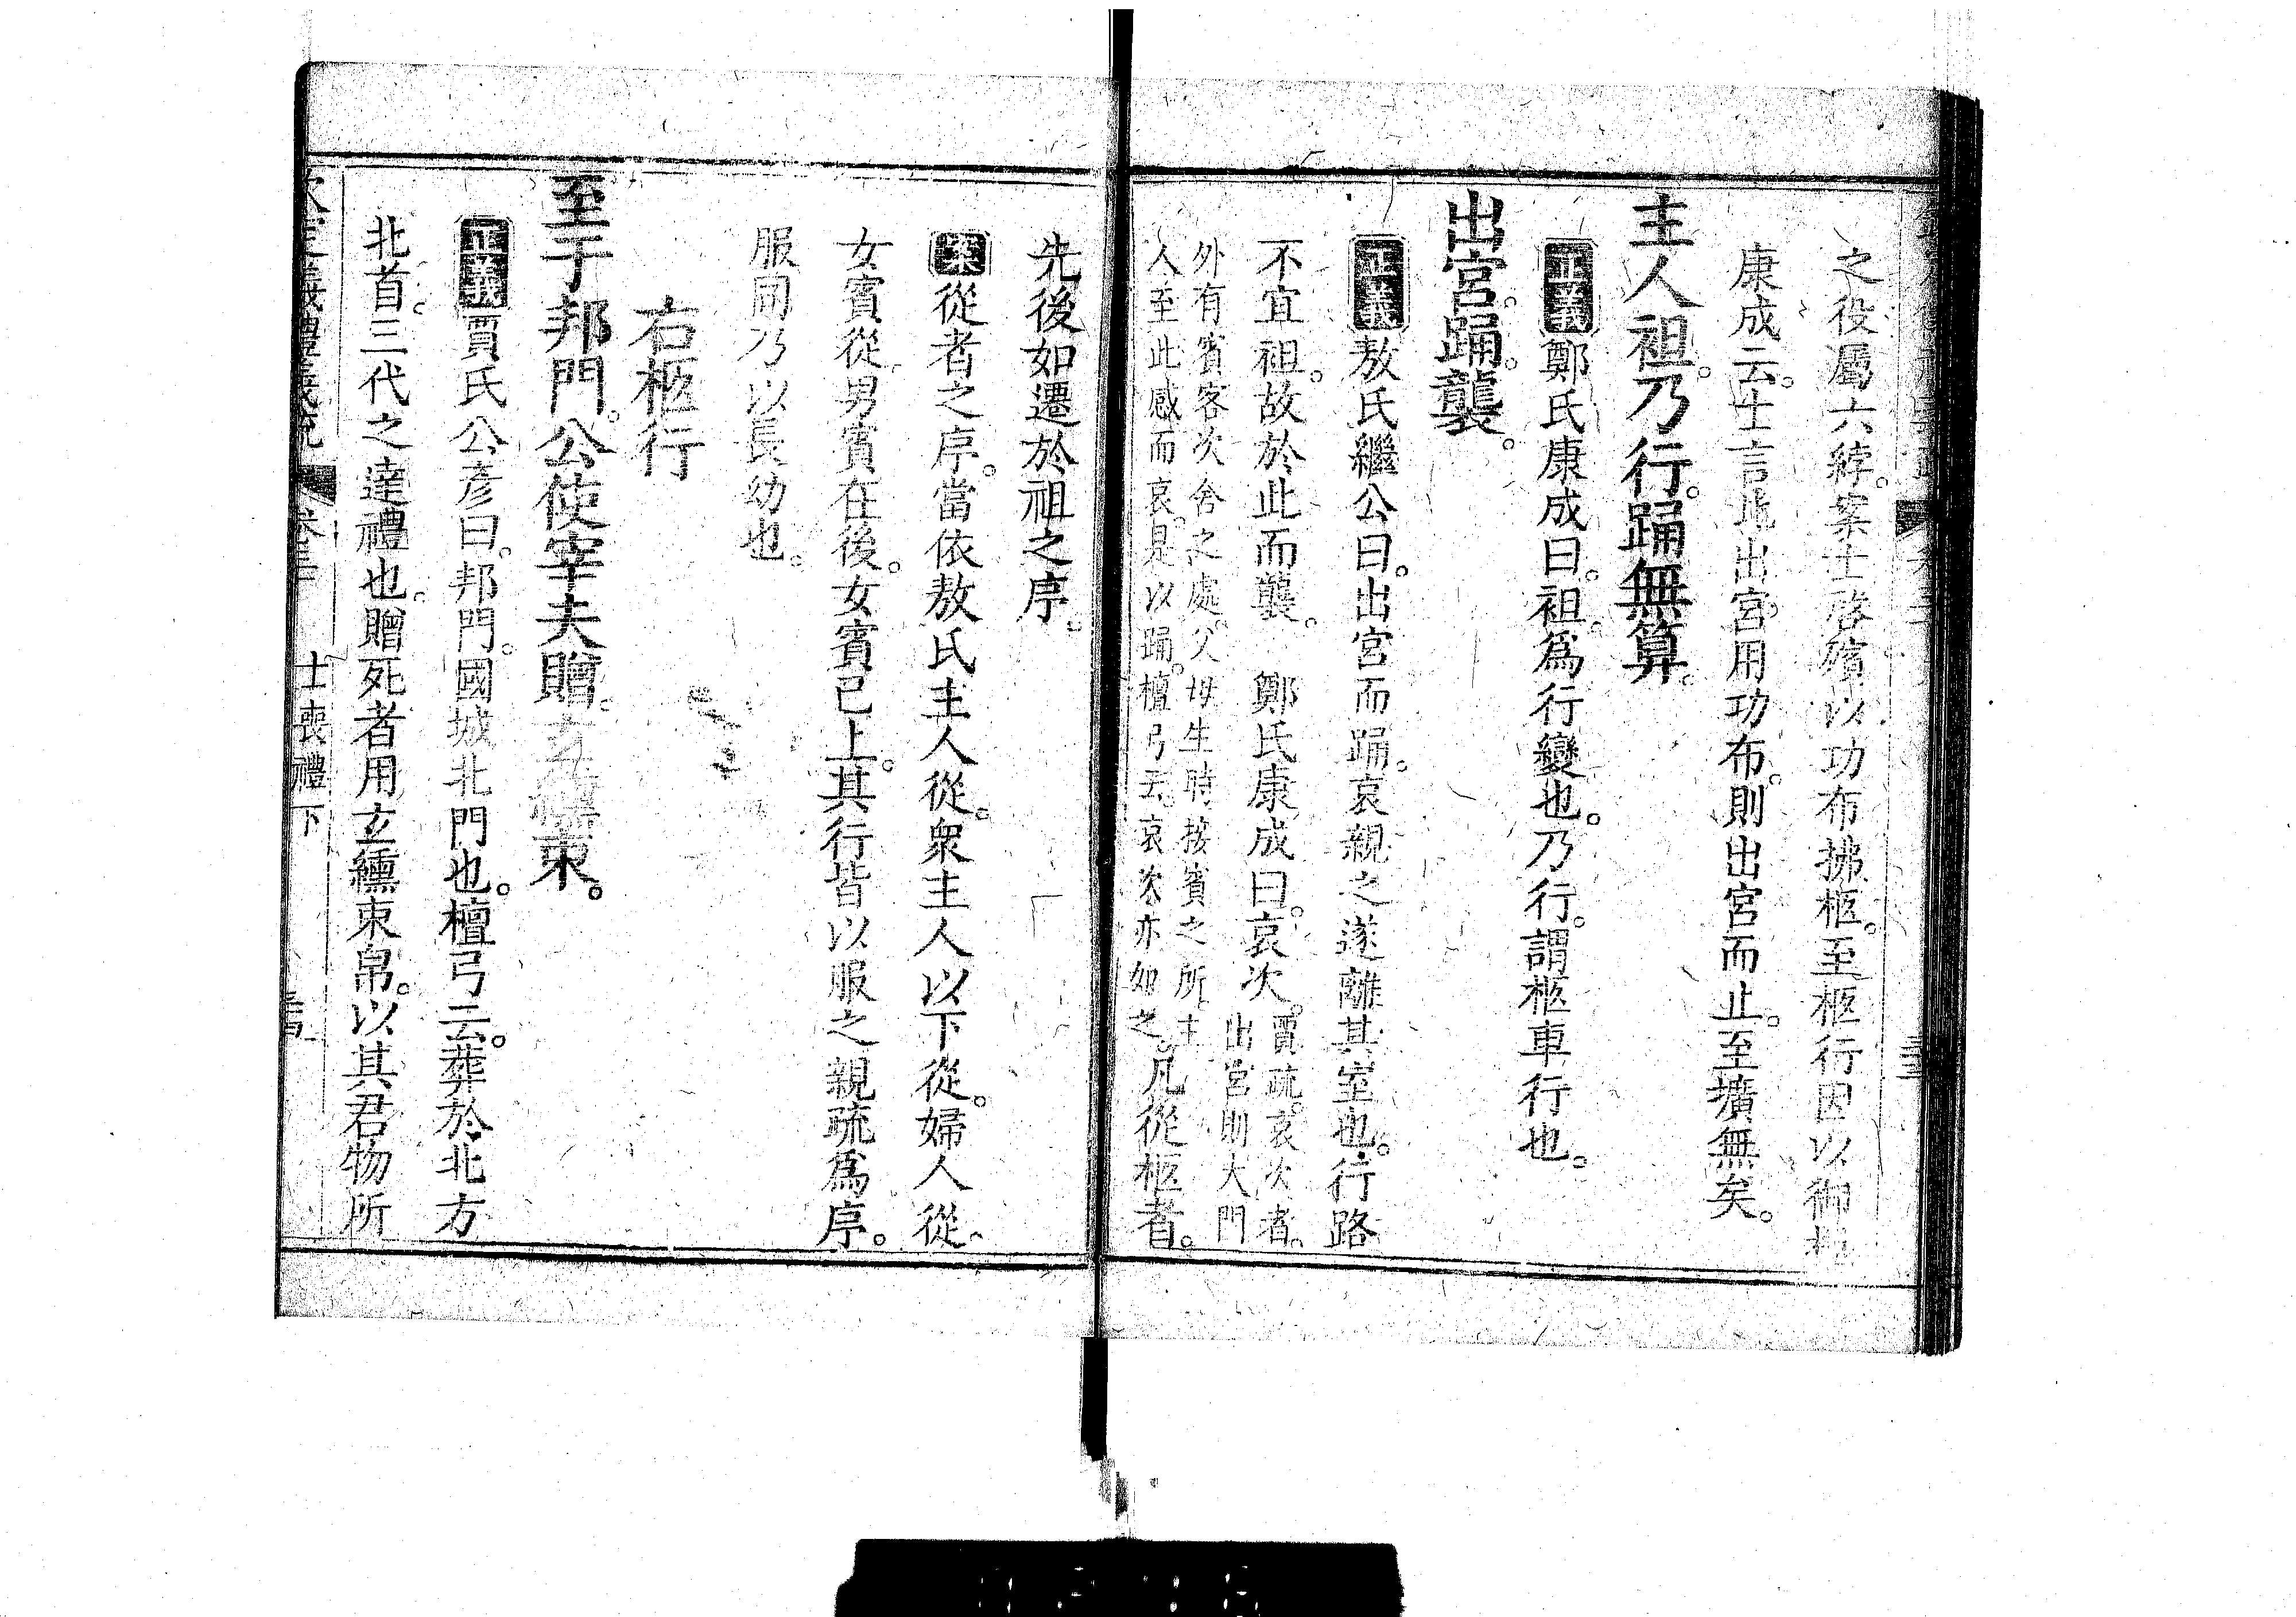 之役屬六綍。案士啓殯以功布拂柩。至柩行因以御柩
康成云。士言此出宮。用功布。則出宮而止。至壙無矣。
主人袒。乃行。踊無算。
正義鄭氏康成曰。袒。爲行變也。乃行。謂柩車行也。
出宮。踊。襲。
正義敖氏繼公曰。出宮而踊。哀親之遂離其室也。行路
不宜袒。故於此而襲。 鄭氏康成曰。哀次。賈疏。哀次者。出宮則大門
外有賓客次舍之處。父母生時。接賓之所。主
人至此感而哀。是以踊。檀弓云。哀次亦如之。凡從柩者。
先後如遷於祖之序。
案從者之序。當依敖氏主人從。衆主人以下從。婦人從。
女賓從。男賓在後。女賓已上。其行皆以服之親疏爲序。
服同乃以長幼也。
右柩行
至于邦門。公使宰夫贈。玄纁束。
正義賈氏公彥曰。邦門。國城北門也。檀弓云。葬於北方
北首。三代之達禮也。贈死者用玄纁束帛。以其君物所
欽定義禮義疏 卷三十 士喪禮下